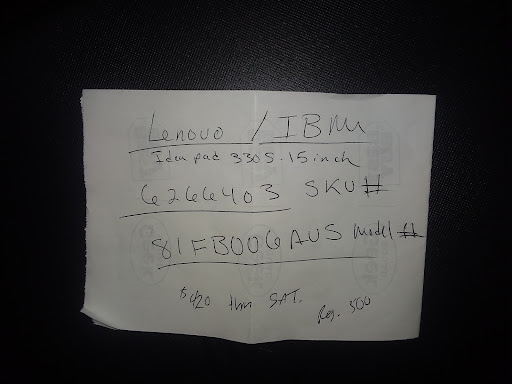 Lenovo / IBM
Idea pad 330S.15inch
6266403 SKU#
81FB006AUS Model #
$420 thru SAT.
Reg. 500